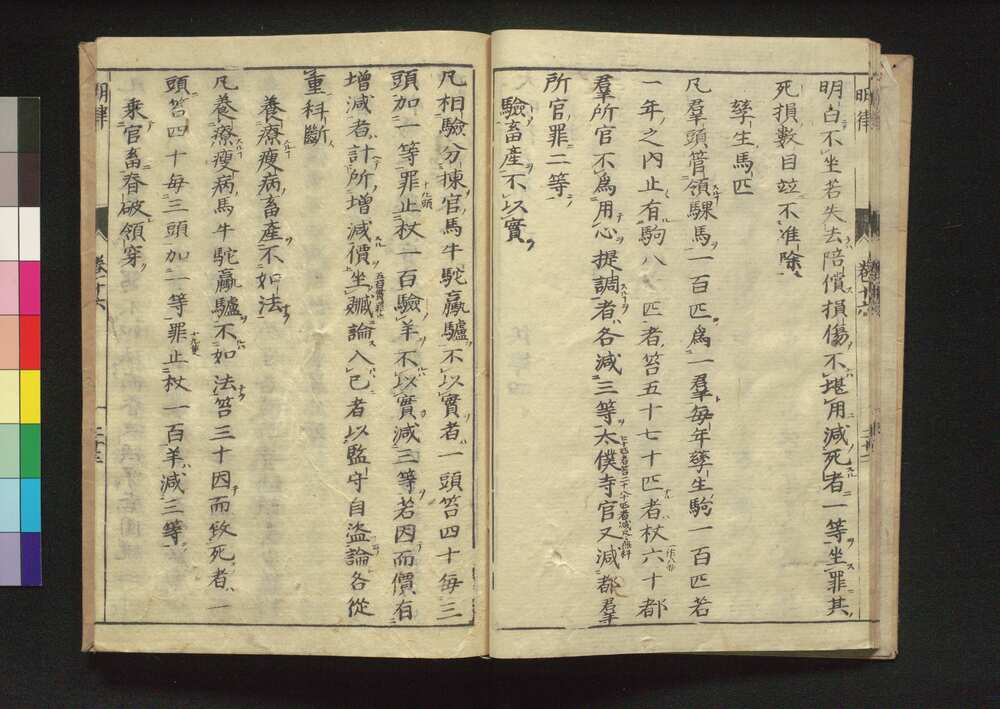 明律
卷十六
明白不坐若失去陪償損傷不堪用減死者一等坐罪其
死損數目竝不准除
孳生馬匹
凡羣頭管領騍馬一百匹爲一羣每年孳生駒一百匹若
一年之內止有駒八十匹者笞五十七十匹者杖六十都
羣所官不爲用心提調者各減三等太僕寺官又減都羣
所官罪二等
驗畜產不以實
凡相驗分揀官馬牛駝驘驢不以實者一頭笞四十每三
頭加一等罪止杖一百驗羊不以實減三等若因而價有
增減者計所增減價坐贓論入己者以監守自盜論各從
重科斷
養療瘦病畜產不如法
凡養療瘦病馬牛駝驘驢不如法笞三十因而致死者一
頭笞四十每三頭加一等罪止杖一百羊減三等
乘官畜脊破領穿
明律
卷十六
二十三